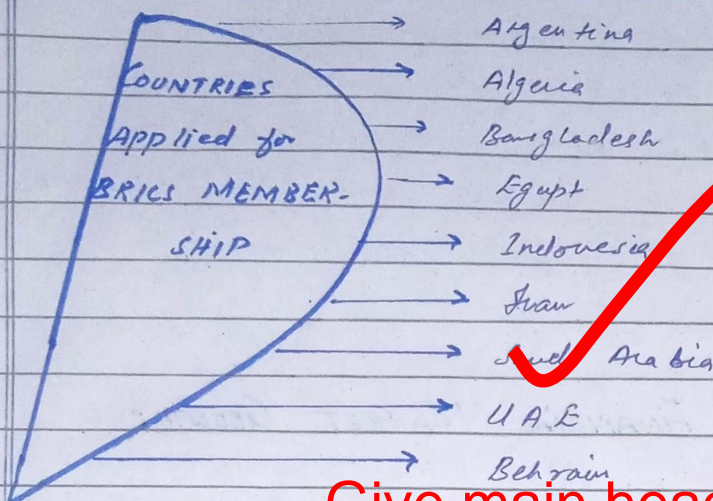 COUNTRIES
Applied for
BRICS MEMBER-
SHIP
Argentina
Algeria
Bangladesh
Egypt
Indonesia
Iran
Saudi Arabia
U A E
Behrain
Give main